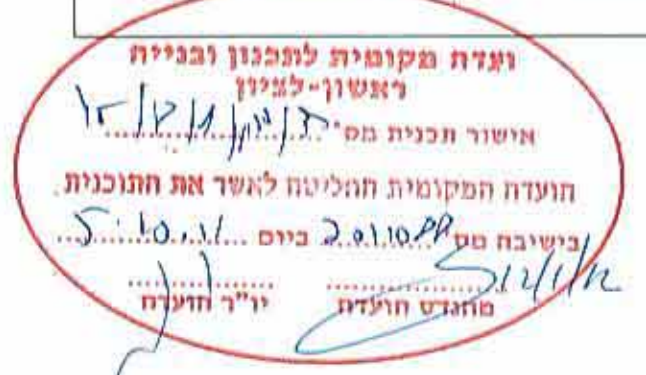 ועדת מקומית לתכנון ובנייה
ראשון-לציון
אישור תכנית מס'
הועדה המקומית החליטה לאשר את התוכנית
בישיבה מס' ביום 5.10.11
12/1/12
מהנדס הועדה יו"ר הועדה